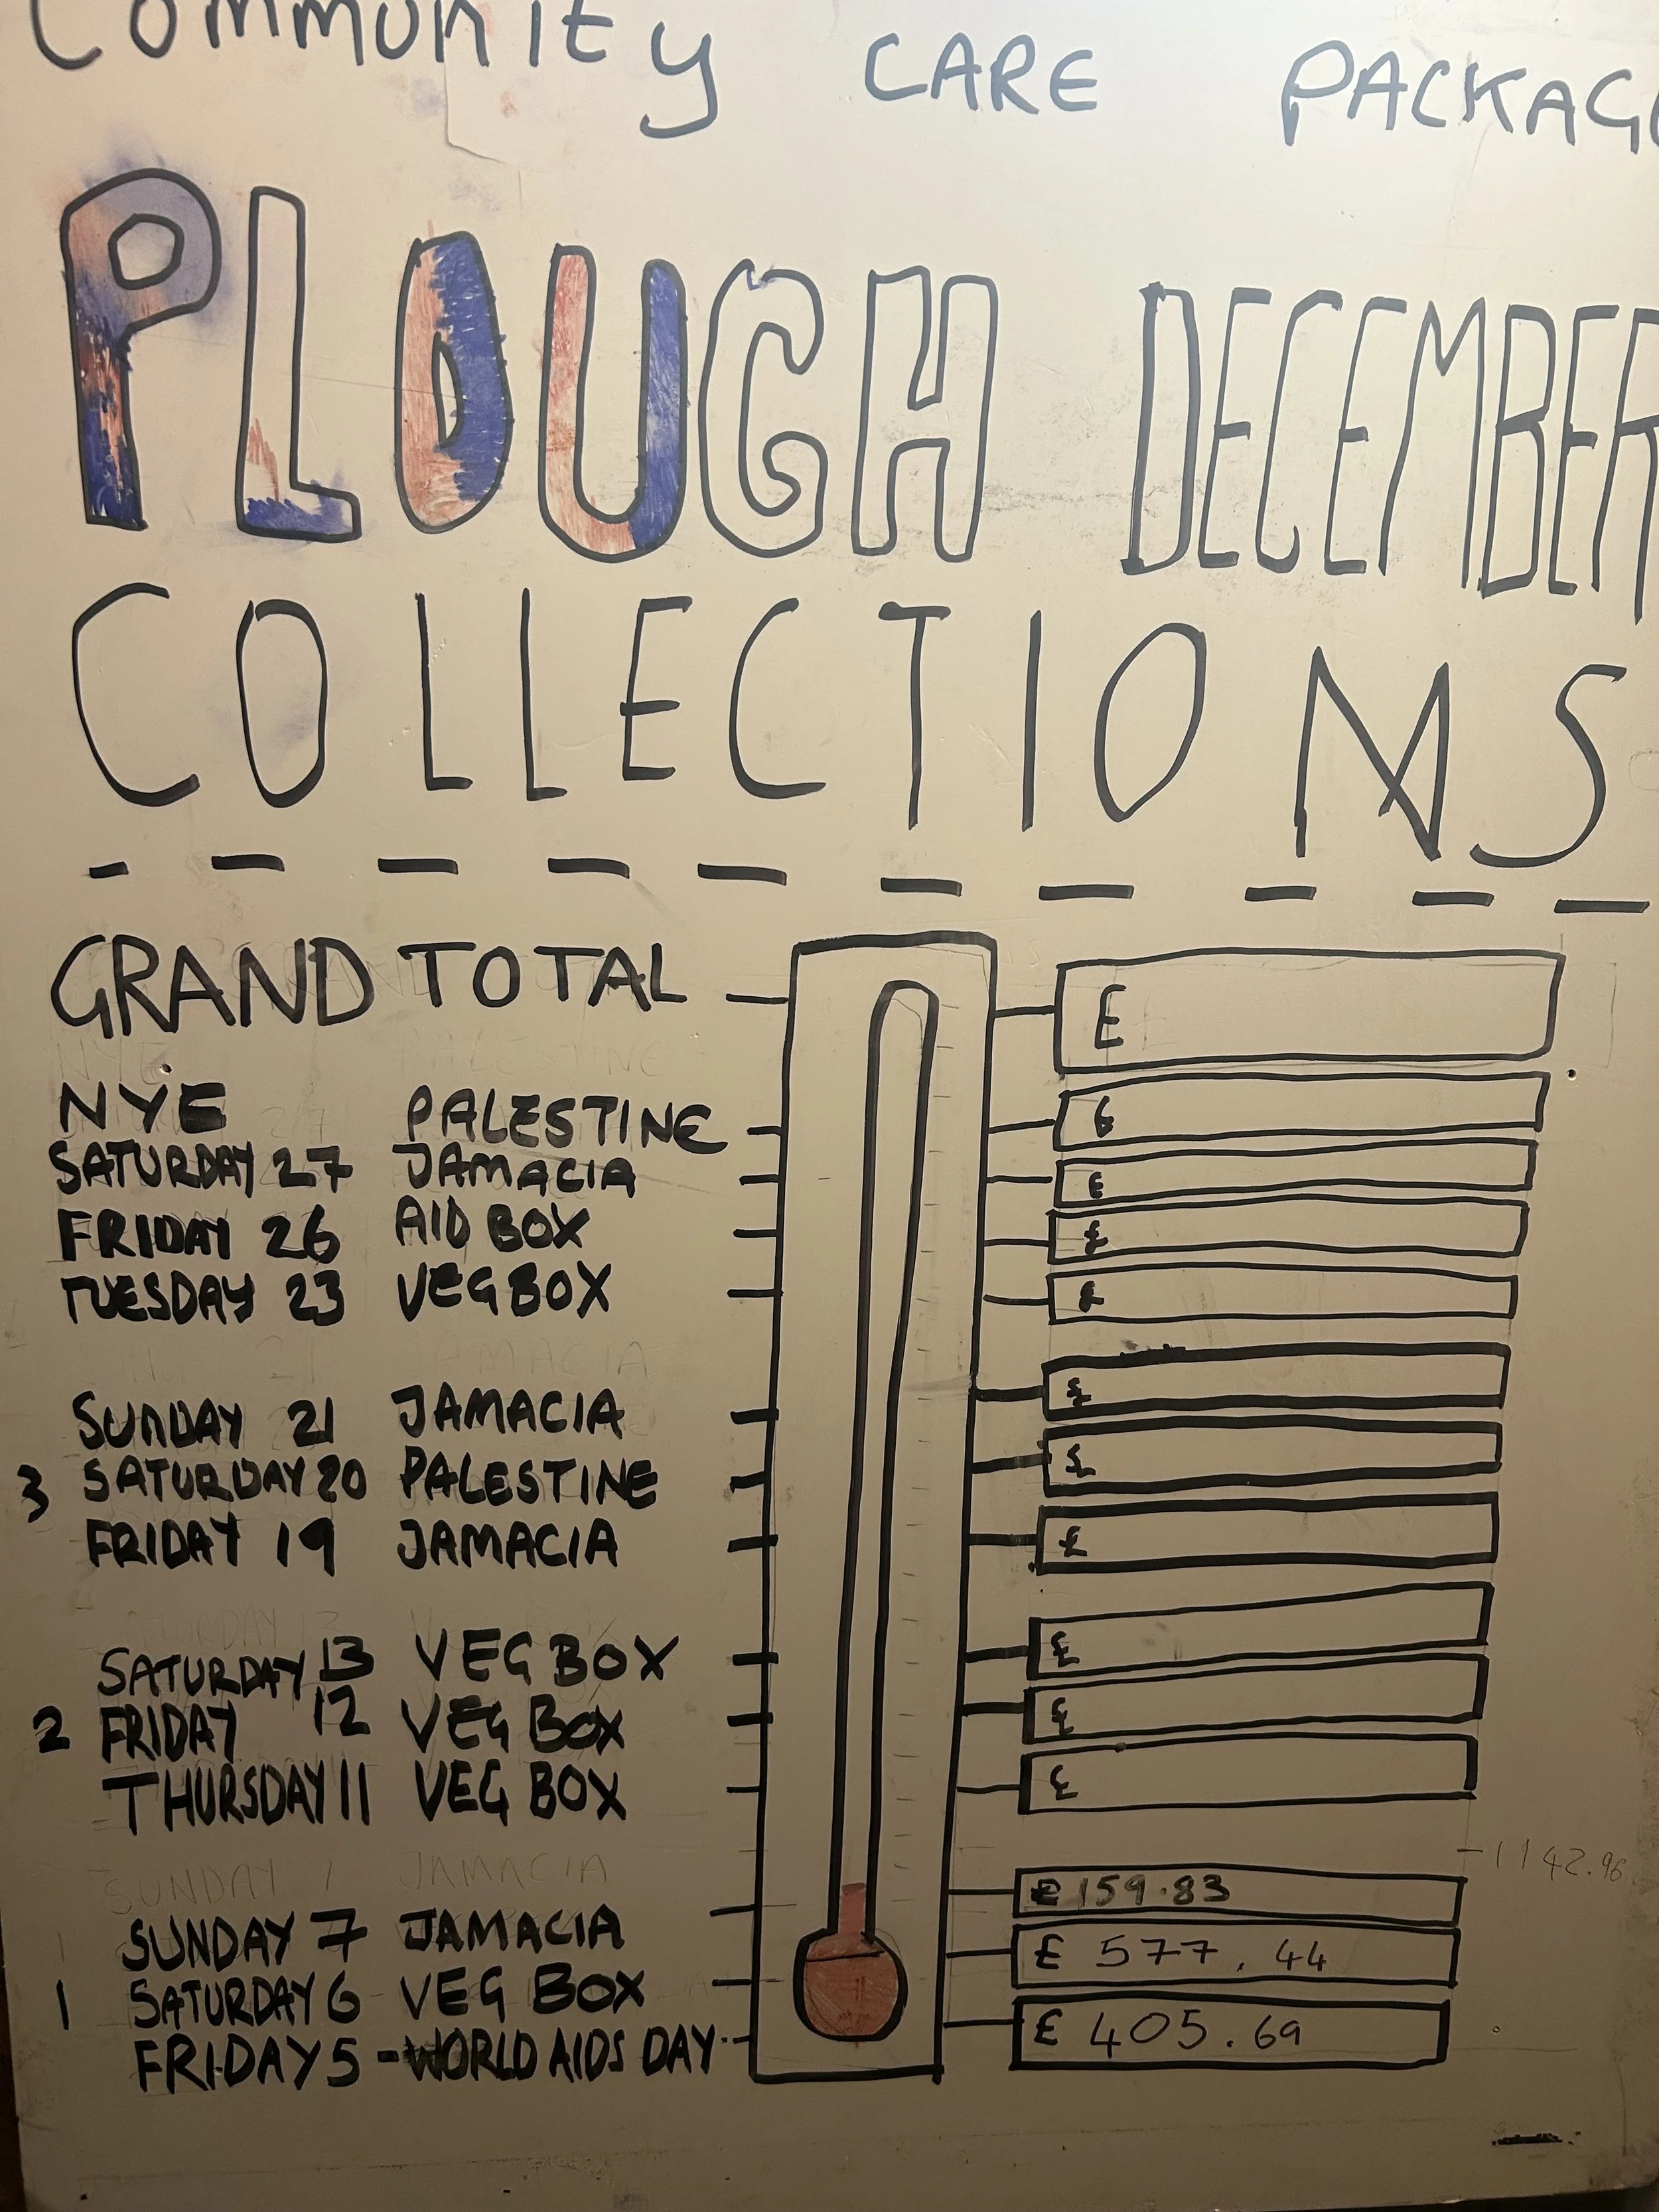 Community CARE PACKAG
PLOUGH DECEMBER
COLLECTIONS
GRAND TOTAL £
NYE PALESTINE £
SATURDAY 27 JAMACIA £
FRIDAY 26 AID BOX £
TUESDAY 23 VEG BOX £
SUNDAY 21 JAMACIA £
3 SATURDAY 20 PALESTINE £
FRIDAY 19 JAMACIA £
SATURDAY 13 VEG BOX £
2 FRIDAY 12 VEG BOX £
THURSDAY 11 VEG BOX £
1142.96
SUNDAY 7 JAMACIA £159.83
1 SATURDAY 6 VEG BOX £ 577.44
FRIDAY 5 - WORLD AIDS DAY £ 405.69